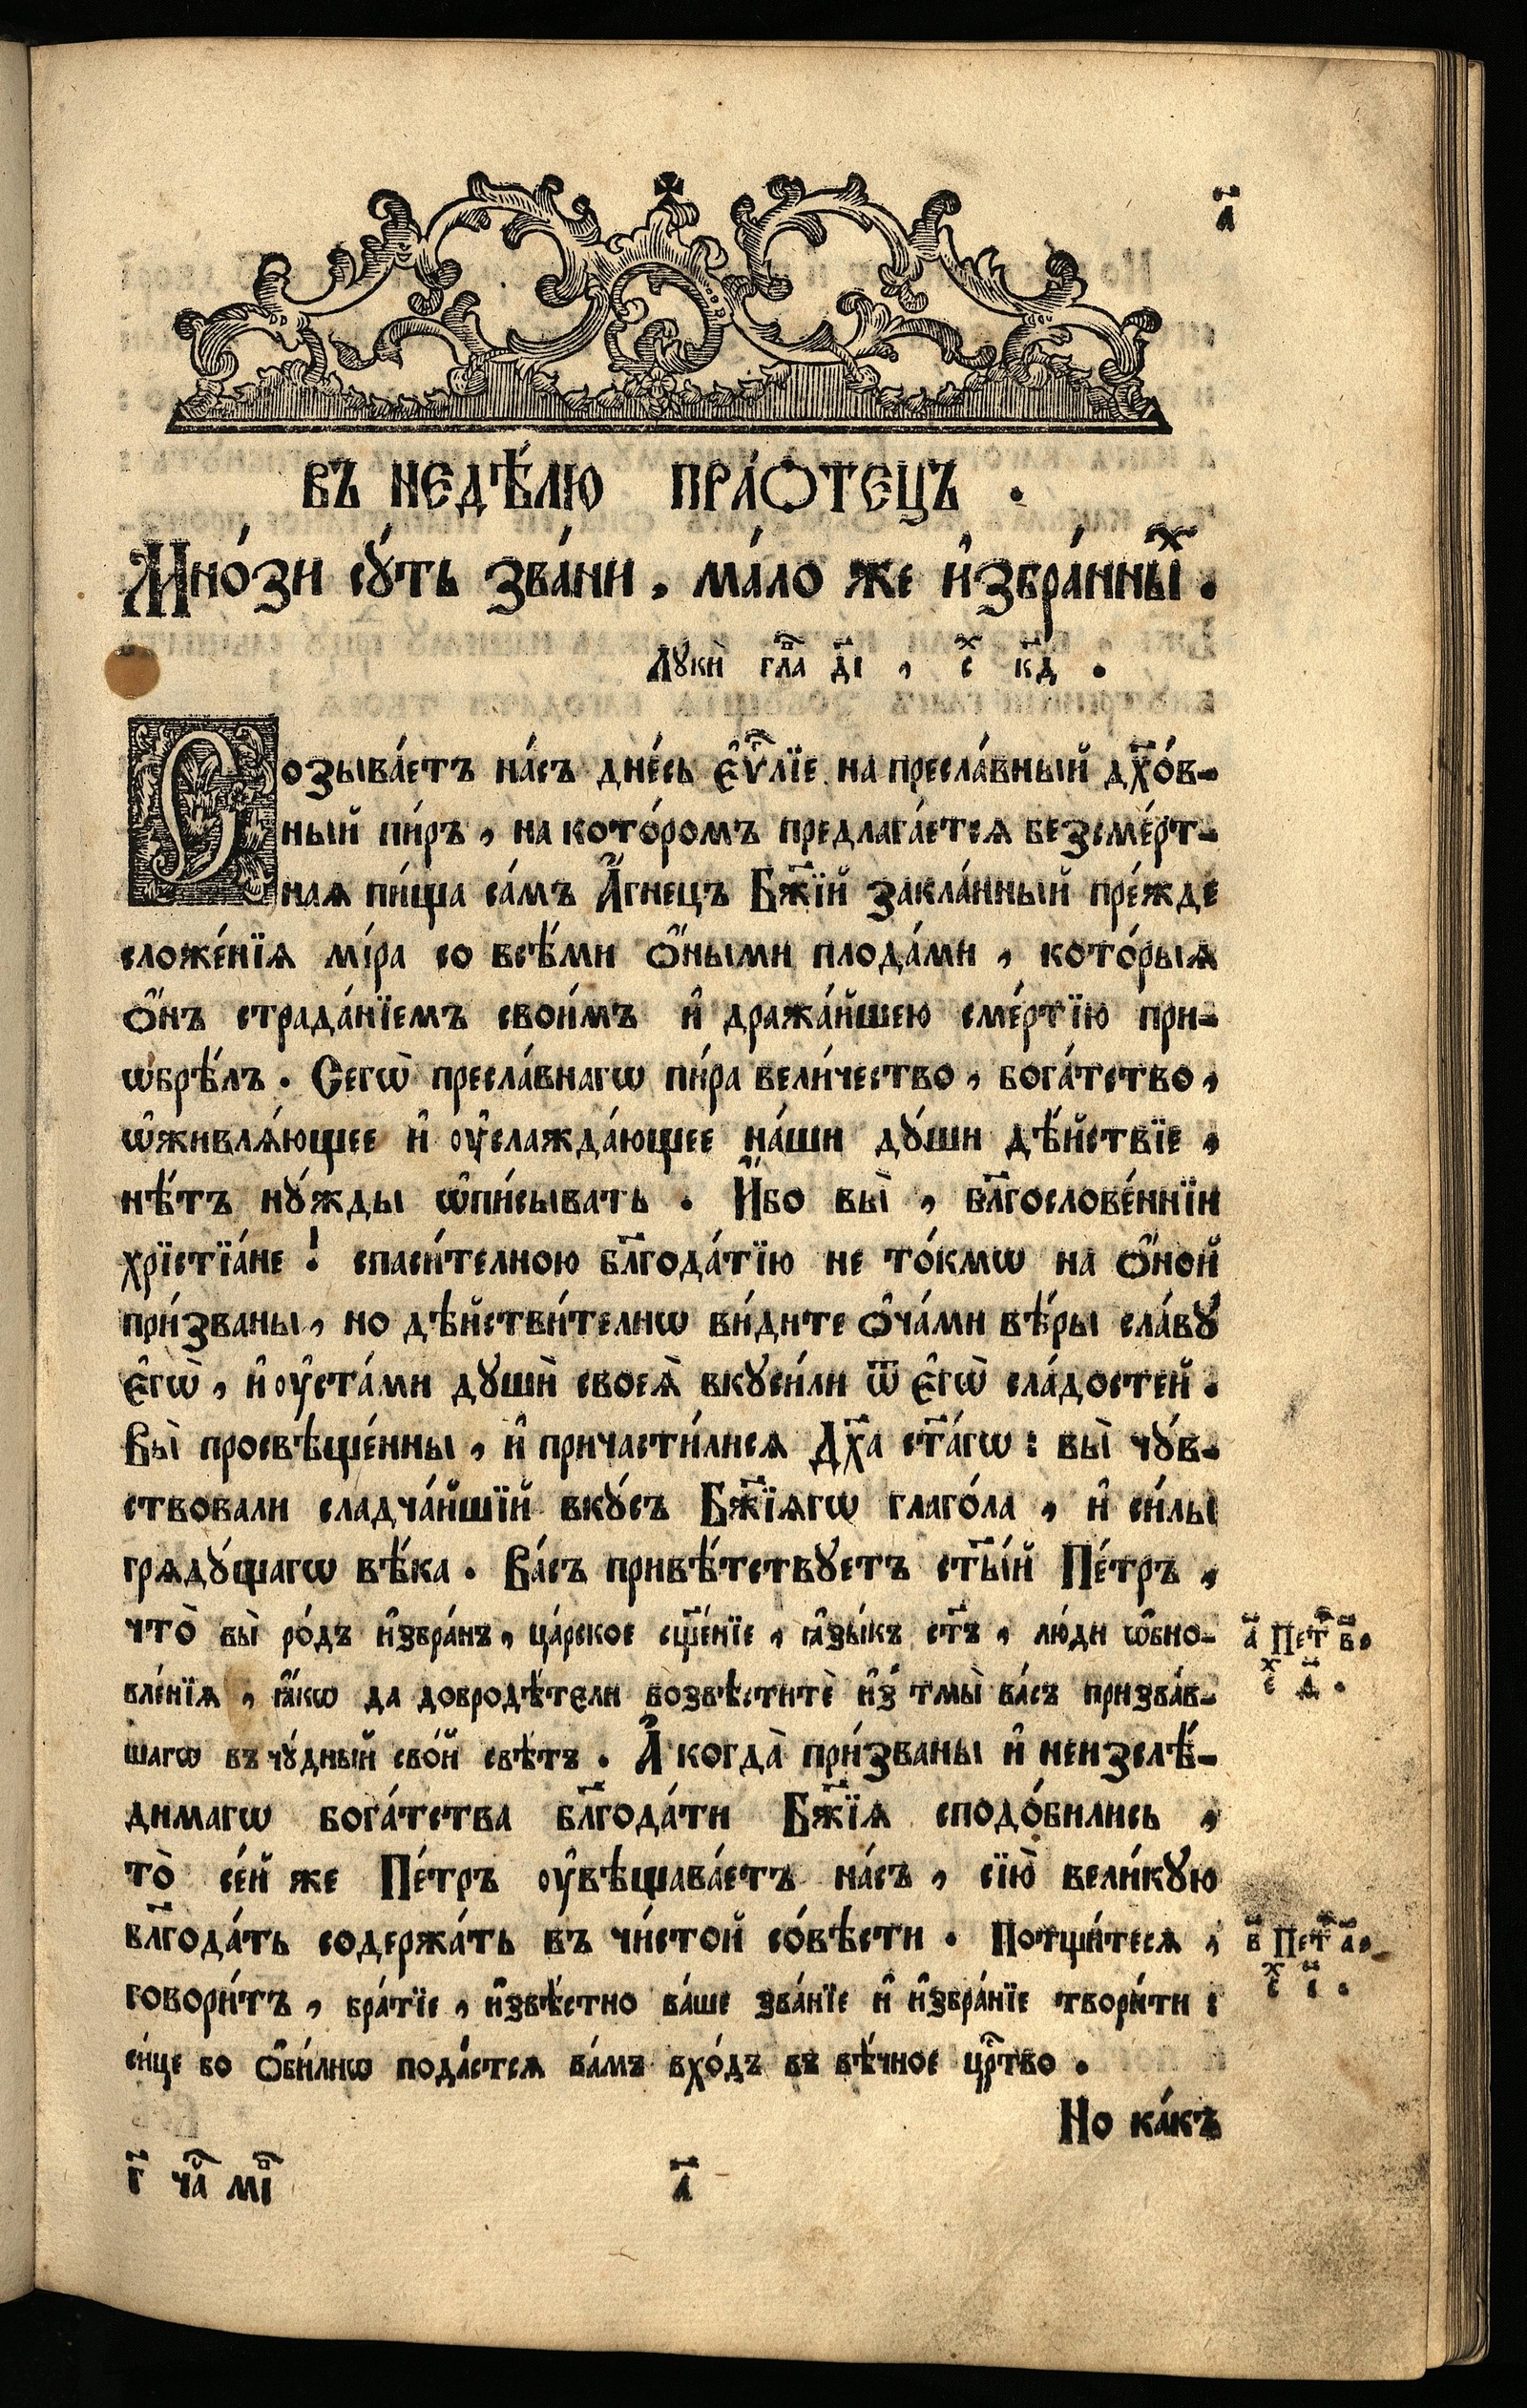 а҃
въ недѣ́лю пра́ѻтецъ .
Мно́зи сꙋ́ть зва́ни , ма́ло же и҆збра́нныⷯ .
Лꙋкѝ глⷡ҇а д҃і , сⷯ к҃д .
Созыва́етъ на́съ дне́сь є҆ѵⷢ҇лїе на пресла́вный дх҃о́в-
ный пи́ръ , на кото́ромъ предлага́етсѧ безсме́рт-
наѧ пи́ща са́мъ А҆́гнецъ Бж҃їй закла́нный пре́жде
сложе́нїѧ мі́ра со всѣ́ми ѻ҆́ными плода́ми , кото́рыѧ
ѻ҆́нъ страда́нїемъ свои́мъ и҆ дража́йшею сме́ртїю при-
ѡбрѣ́лъ . Сегѡ̀ пресла́внагѡ пи́ра вели́чество , бога́тство ,
ѡ҆живлѧ́ющее и҆ оу҆слажда́ющее на́ши дꙋ́ши дѣ́йствїе ,
нѣ́тъ нꙋ́жды ѡ҆пи́сывать . И҆́бо вы̀ , бл҃гослове́ннїи
хрїстїа́не ! спаси́телною бл҃года́тїю не то́кмѡ на ѻ҆́ной
при́званы , но дѣйстви́телнѡ ви́дите ѻ҆ча́ми вѣ́ры сла́вꙋ
є҆гѡ̀ , и҆ оу҆ста́ми дꙋшѝ своеѧ̀ вкꙋси́ли ѿ є҆гѡ̀ сла́достей .
Вы̀ просвѣще́нны , и҆ причасти́лисѧ Дх҃а ст҃а́гѡ : вы̀ чꙋ́в-
ствовали сладча́йшїй вкꙋ́съ Бж҃їѧгѡ глаго́ла , и҆ си́лы
грѧдꙋ́щагѡ вѣ́ка . Ва́съ привѣ́тствꙋетъ ст҃ы́й Пе́тръ ,
что̀ вы̀ ро́дъ и҆збра́нъ , ца́рское сщ҃е́нїе , ꙗ҆зы́къ ст҃ъ , лю́ди ѡ҆бно-
а҃ Пет в҃.
вле́нїѧ , ꙗ҆́кѡ да добродѣ́тели возвѣститѐ и҆з̾ тмы̀ ва́съ призва́в-
сⷯ д҃ .
шагѡ въ чꙋ́дный сво́й свѣ́тъ . А҆ когда̀ при́званы и҆ неизслѣ́-
димагѡ бога́тства бл҃года́ти Бж҃їѧ сподо́бились ,
то̀ се́й же Пе́тръ оу҆вѣщава́етъ на́съ , сїю̀ вели́кꙋю
бл҃года́ть содержа́ть въ чи́стой со́вѣсти . Потщи́тесѧ ,
в҃ Пет а҃.
говори́тъ , бра́тїе , и҆звѣ́стно ва́ше зва́нїе и҆ и҆збра́нїе твори́ти :
сⷯ і҃ .
си́це бо ѻ҆би́лнѡ пода́стсѧ ва́мъ вхо́дъ въ вѣ́чное црⷭ҇тво .
Но ка́къ
г҃ чⷭ҇а мі
а҃